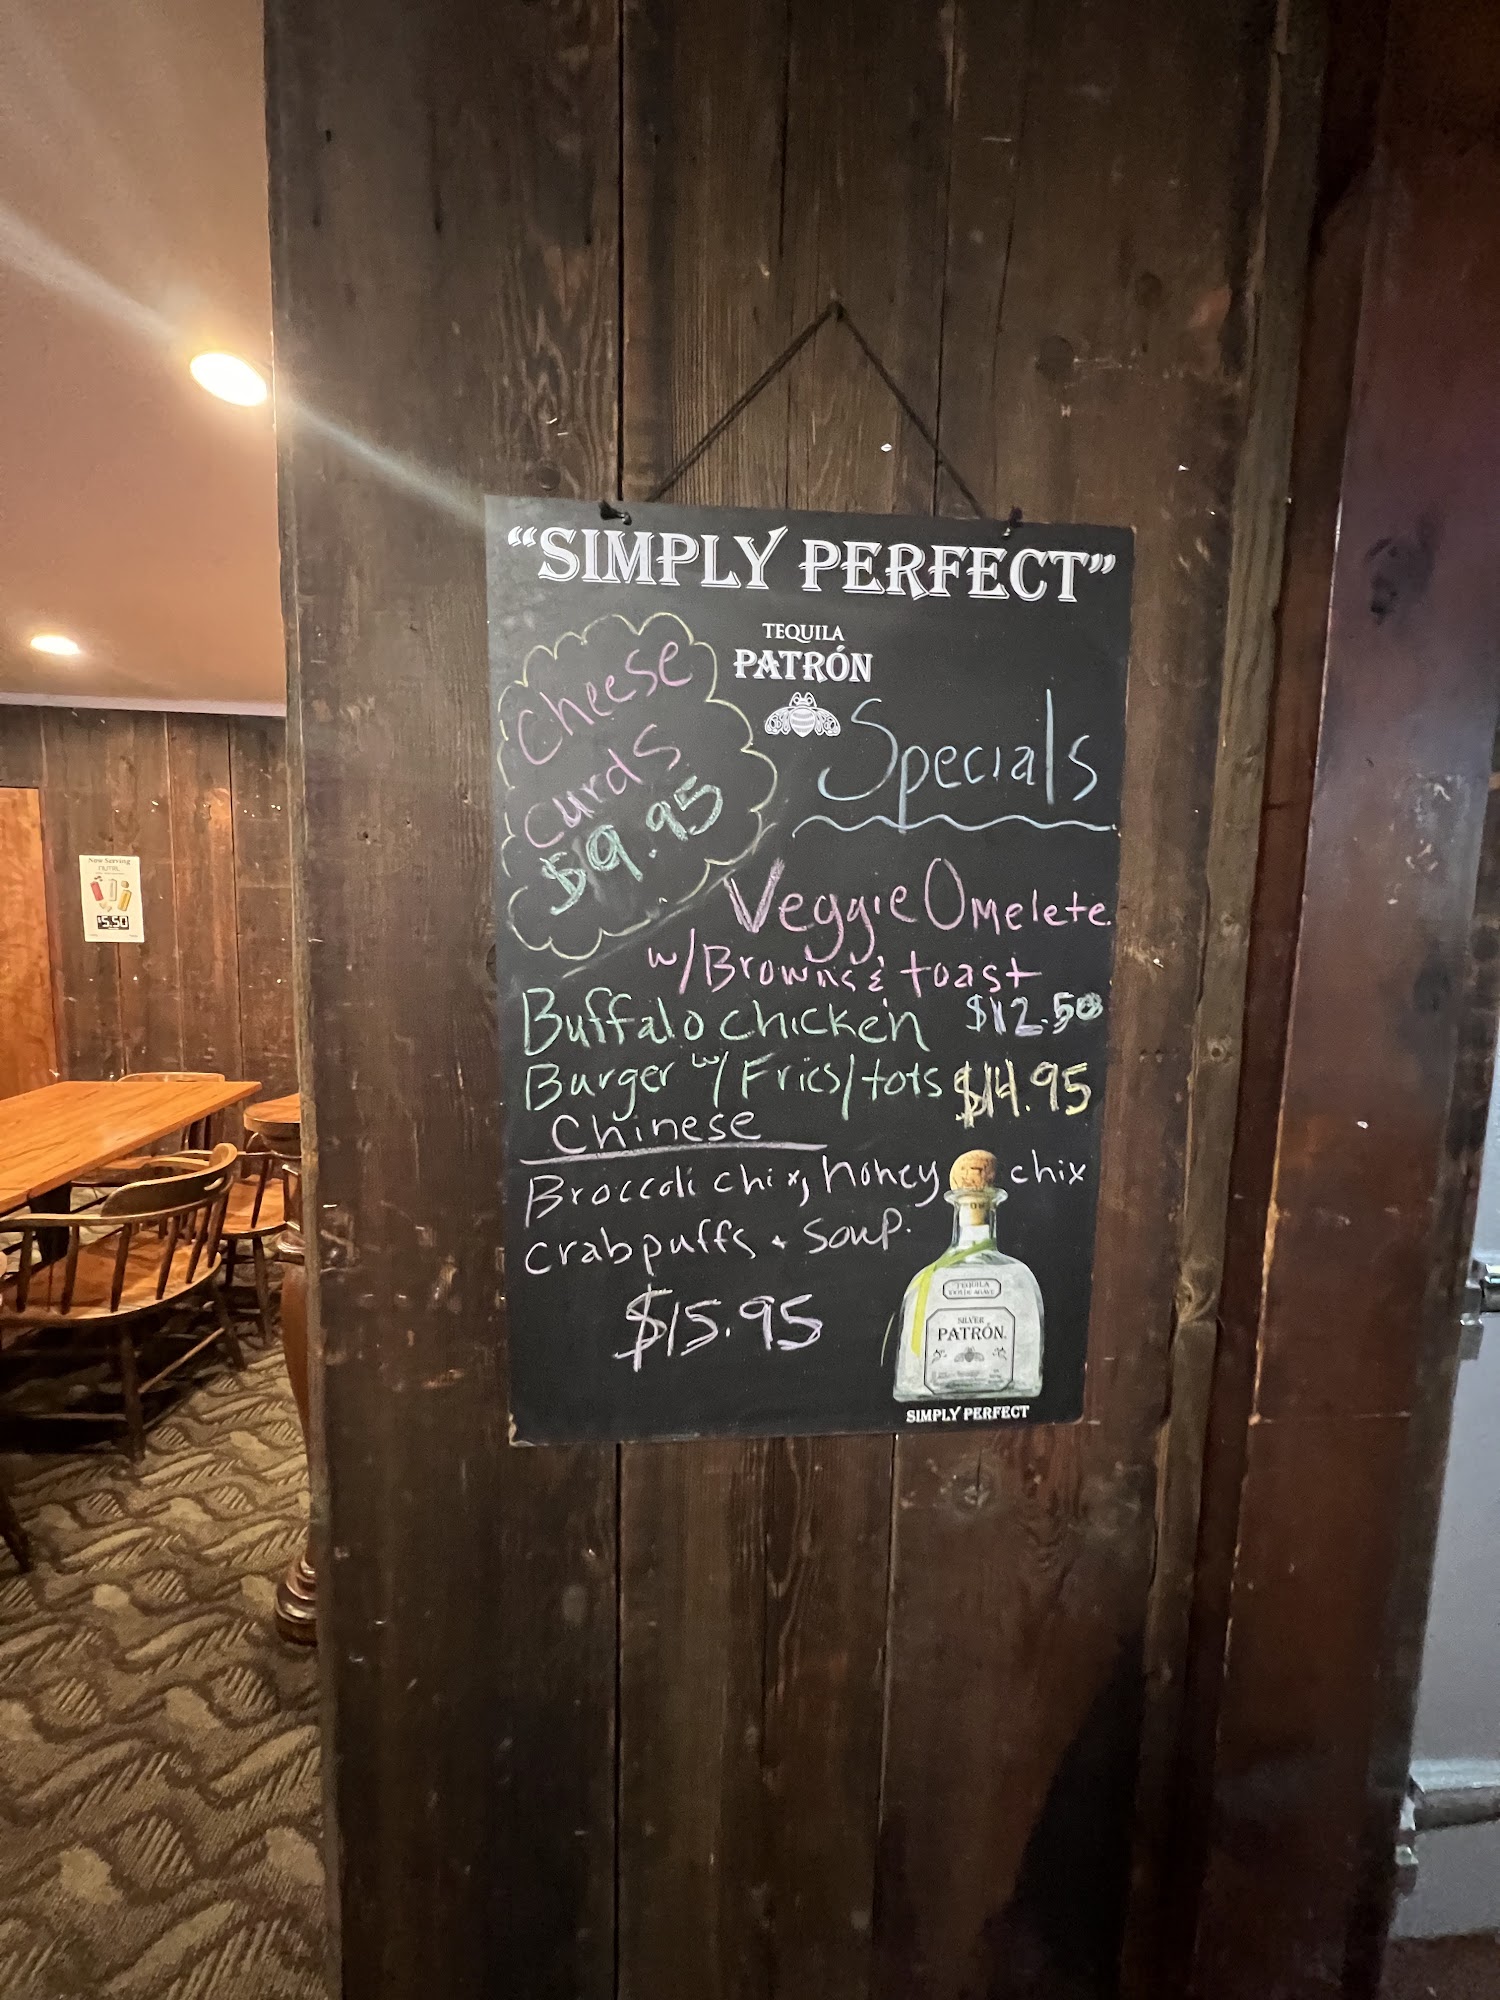 "SIMPLY PERFECT"
TEQUILA
PATRÓN
Cheese
curds
$9.95
Specials
Veggie Omelete
w/Browns & toast
$12.50
Buffalo chicken
Burger w/ Fries/tots $14.95
Chinese
Broccoli chix, honey chix
crabpuffs + soup.
$15.95
TEQUILA
SILVER
PATRÓN
SIMPLY PERFECT
Now Serving
NÜTRL
$5.50